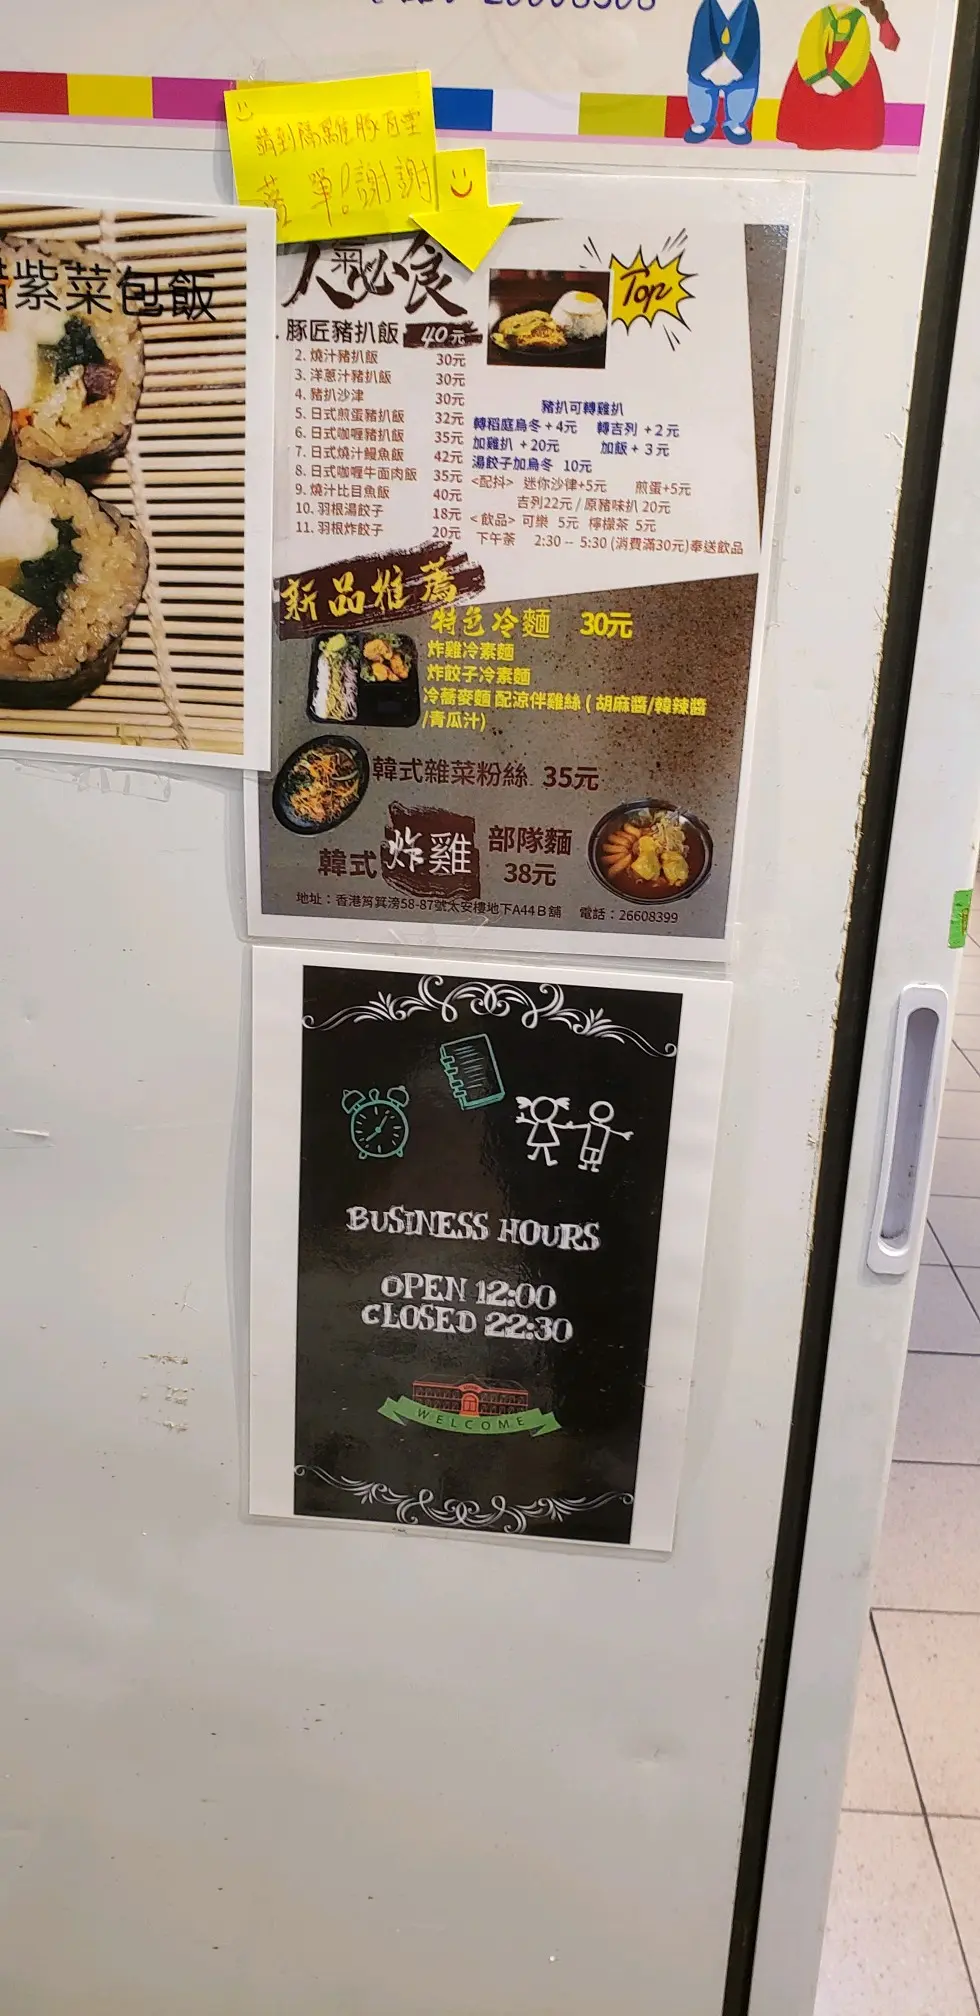 請到隔離豚百堂
落單!謝謝
紫菜包飯
人氣必食
Top
豚匠豬扒飯 40元
2. 燒汁豬扒飯 30元
3. 洋蔥汁豬扒飯 30元
4. 豬扒沙津 30元
5. 日式煎蛋豬扒飯 32元
6. 日式咖喱豬扒飯 35元
7. 日式燒汁鰻魚飯 42元
8. 日式咖喱牛面肉飯 35元
9. 燒汁比目魚飯 40元
10. 羽根湯餃子 18元
11. 羽根炸餃子 20元
豬扒可轉雞扒
轉稻庭烏冬+4元 轉吉列 +2元
加雞扒 +20元 加飯+ 3元
湯餃子加烏冬 10元
<配抖> 迷你沙律+5元 煎蛋+5元
吉列22元 / 原豬味扒 20元
<飲品> 可樂 5元 檸檬茶 5元
下午茶 2:30 -- 5:30 (消費滿30元)奉送飲品
新品推薦
特色冷麵 30元
炸雞冷素麵
炸餃子冷素麵
冷蕎麥麵 配涼伴雞絲 ( 胡麻醬/韓辣醬
/青瓜汁)
韓式雜菜粉絲 35元
韓式炸雞 部隊麵
38元
地址:香港筲箕滂58-87號太安樓地下A44B舖 電話:26608399
BUSINESS HOURS
OPEN 12:00
CLOSED 22:30
WELCOME